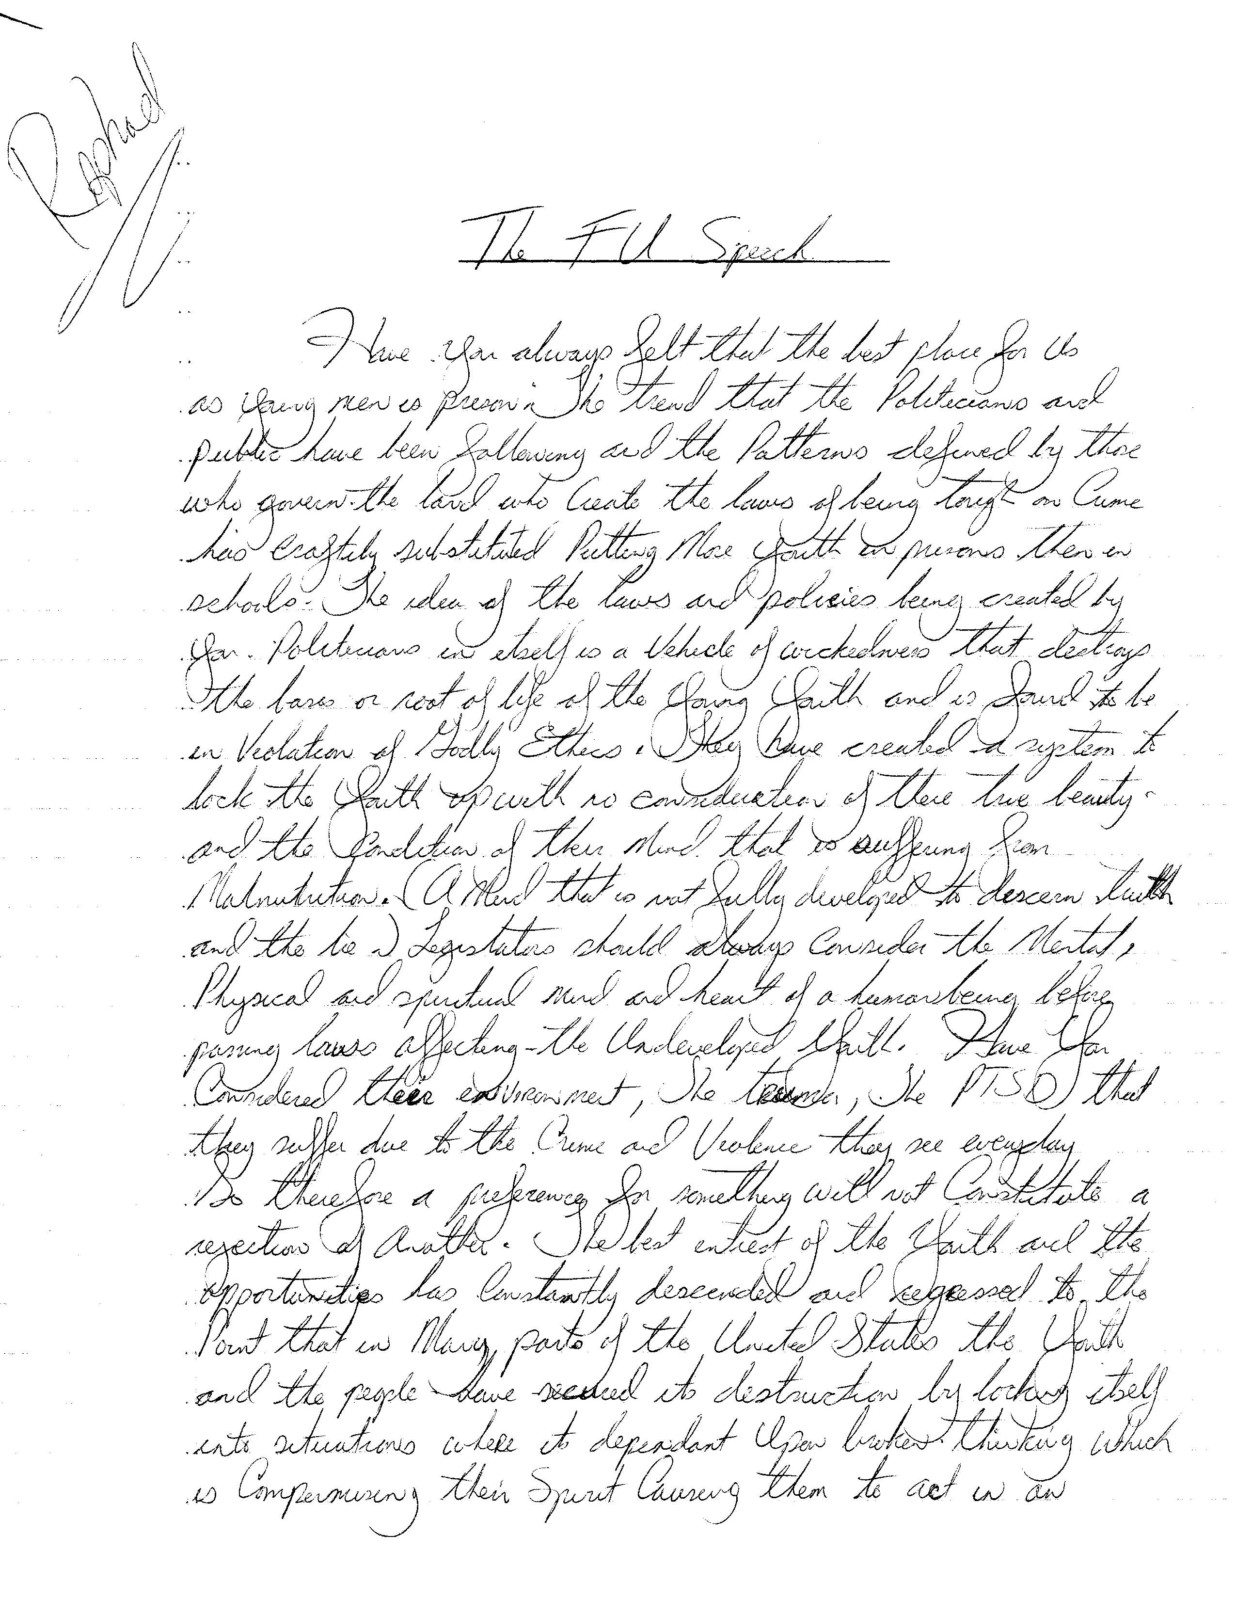 Raphael
The FU Speech
Have you always felt that the best place for us
as young men is prison. The trend that the Politicians and
public have been following and the Patterns defined by those
who govern the land who Create the laws of being tough on Crime
has craftily substituted Putting More Youth in prisons then in
schools. The idea of the laws and policies being created by
you. Politicians in itself is a Vehicle of wickedness that destroys
the bases or root of life of the Young Youth and is found to be
in Violation of Godly Ethics. They have created a system to
lock the Youth up with no consideration of there true beauty
and the Condition of their Mind that is suffering from
Malnutrition. (A Mind that is not fully developed to descern truth
and the lie) Legistators should always Consider the Mental,
Physical and spiritual mind and heart of a human being before
passing laws affecting the Undeveloped Youth. Have You
Considered their environment, The trauma, The PTSD that
they suffer due to the Crime and Violence they see everyday
So therefore a preference for something will not Constitute a
rejection of Another. The best entrest of the Youth and the
opportunities has Constantly descended and regressed to the
Point that in Many parts of the United States the Youth
and the people have secured its destruction by locking itself
into situations where its dependant Upon broken thinking which
is Compermising their Spirit Causing them to act in an